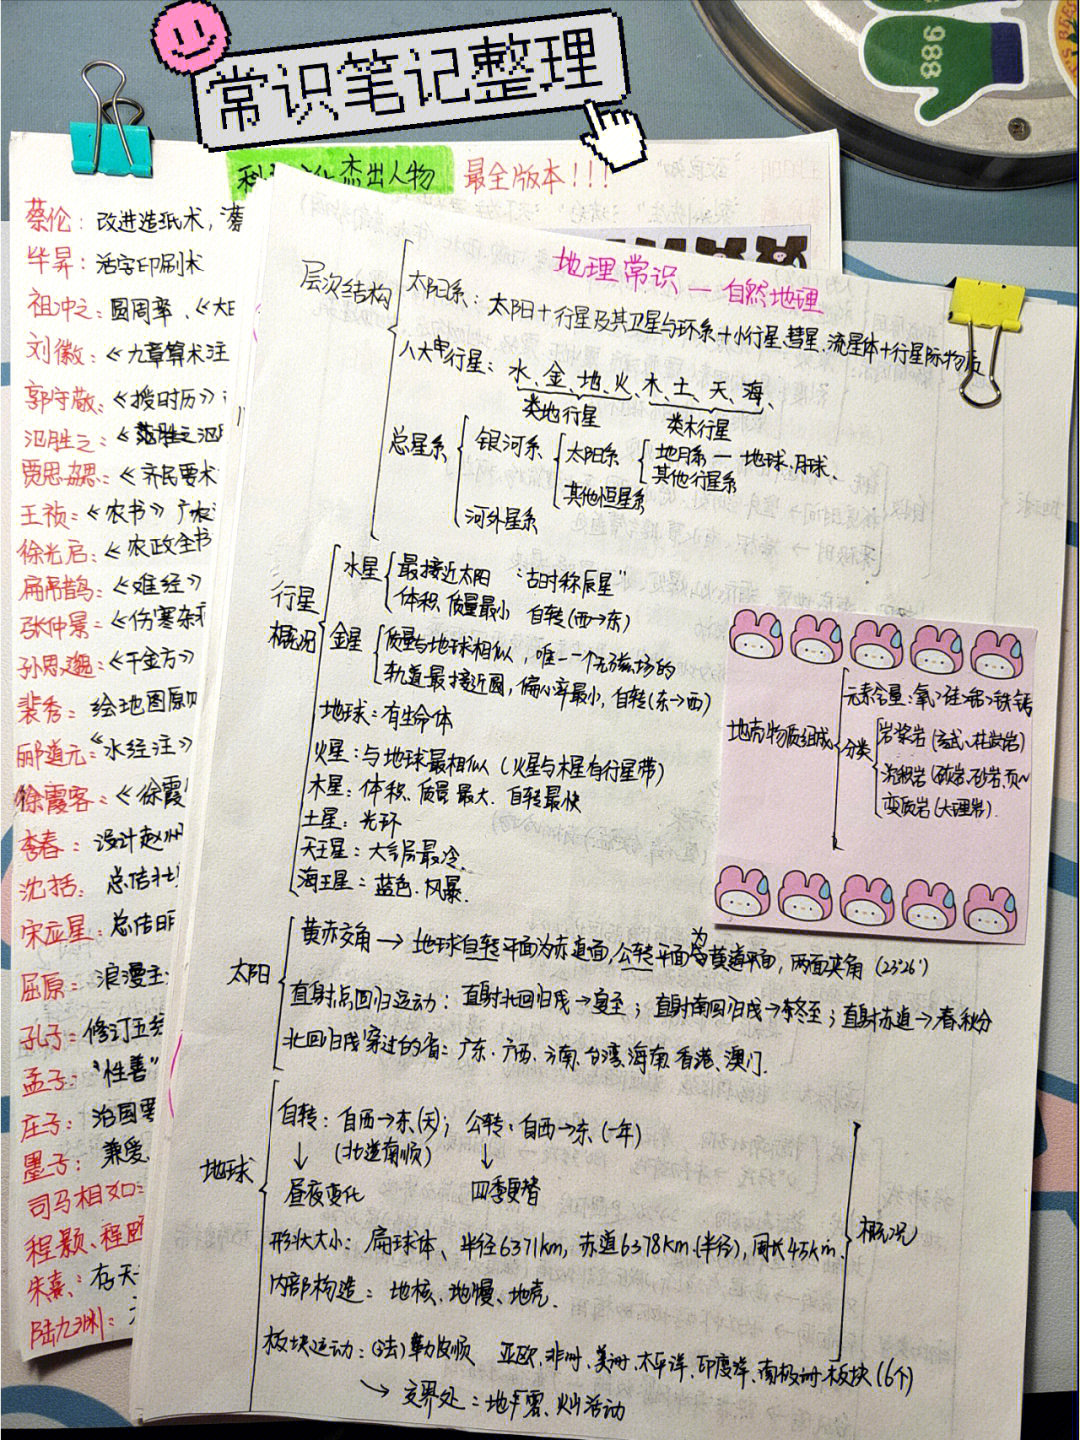 常识笔记整理
988
杰出人物 最全版本!!!
蔡伦:改进造纸术,
毕昇:活字印刷术
祖冲之:圆周率、《大
刘徽:《九章算术注
郭守敬:《授时历》
氾胜之:《氾胜之
贾思勰:《齐民要术
王祯:《农书》广农
徐光启:《农政全书
扁鹊:《难经》
张仲景:《伤寒杂
孙思邈:《千金方》
裴秀:绘地图原
郦道元:《水经注》
徐霞客:《徐霞
李春:设计赵州
沈括:总结北
宋应星:总结明
屈原:浪漫主
孔子:修订五经
孟子:"性善"
庄子:治国要
墨子:兼爱、
司马相如:
程颢、程颐
朱熹:存天
陆九渊:
地理常识—自然地理
层次结构
太阳系:太阳+行星及其卫星与环系+小行星、彗星、流星体+行星际物质
八大行星:水、金、地、火、木、土、天、海、
类地行星 类木行星
总星系 银河系 太阳系 地月系—地球、月球、
其他行星系
其他恒星系
河外星系
行星概况
水星 最接近太阳 :古时称辰星"
体积、质量最小 自转(西→东)
金星 质量与地球相似,唯一一个无磁场的
轨道最接近圆,偏心率最小,自转(东→西)
地球:有生命体
火星:与地球最相似(火星与木星有行星带)
木星:体积、质量最大、自转最快
土星:光环
天王星:大气层最冷、
海王星:蓝色、风暴、
地壳物质组成
元素含量:氧>硅>铝>铁>钙
分类 岩浆岩(玄武、花岗岩)
沉积岩(砾岩、砂岩、页~
变质岩(大理岩).
太阳
黄赤交角→地球自转平面为赤道面,公转平面为黄道平面,两面夹角(23°26′)
直射点回归运动:直射北回归线→夏至;直射南回归线→冬至;直射赤道→春秋分
北回归线穿过的省:广东、广西、云南、台湾、海南、香港、澳门.
地球
自转:自西→东(天); 公转:自西→东(一年)
↓ (北逆南顺) ↓
昼夜变化 四季更替
形状大小:扁球体、半径6371km,赤道6378km(半径),周长4万km.
概况
内部构造:地核、地幔、地壳.
板块运动:(法)勒皮顺 亚欧、非洲、美洲、太平洋、印度洋、南极洲板块(6个)
→交界处:地震、火山活动